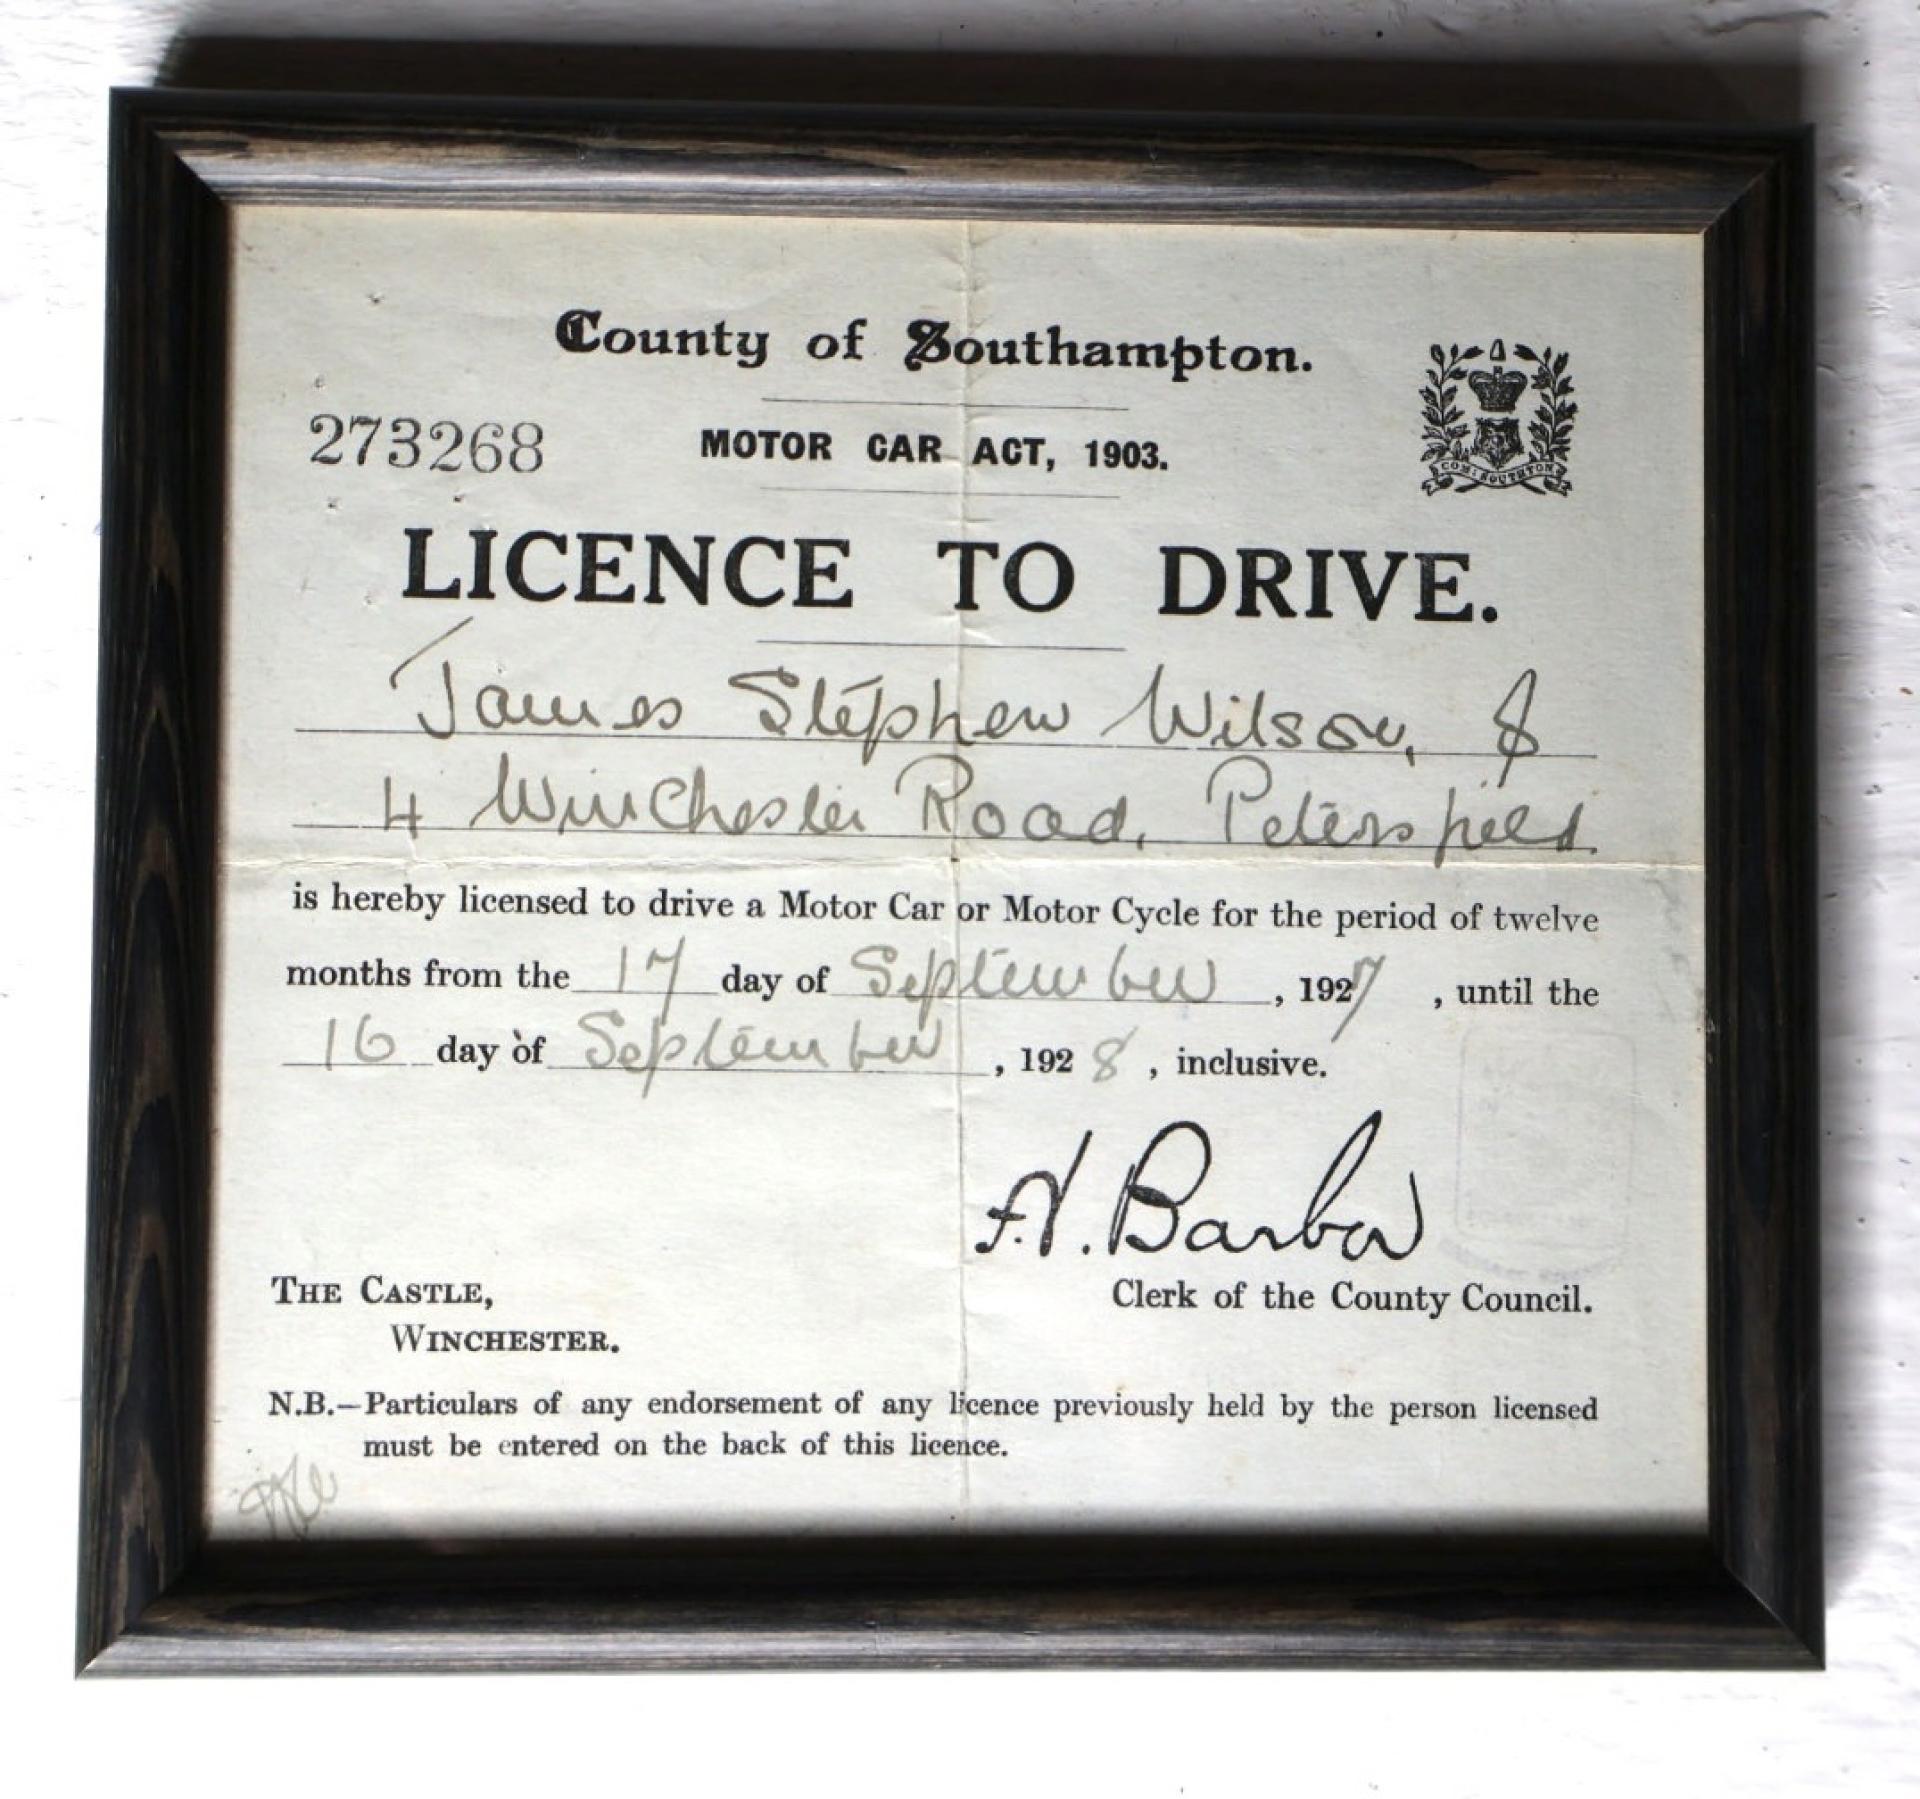 County of Southampton.
273268
MOTOR CAR ACT, 1903.
COM: SOUTHTON
LICENCE TO DRIVE.
James Stephen Wilson, of
4 Winchester Road, Petersfield.
is hereby licensed to drive a Motor Car or Motor Cycle for the period of twelve
months from the 17 day of September, 1927, until the
16 day of September, 1928, inclusive.
F.V. Barber
Clerk of the County Council.
THE CASTLE,
WINCHESTER.
N.B.—Particulars of any endorsement of any licence previously held by the person licensed
must be entered on the back of this licence.